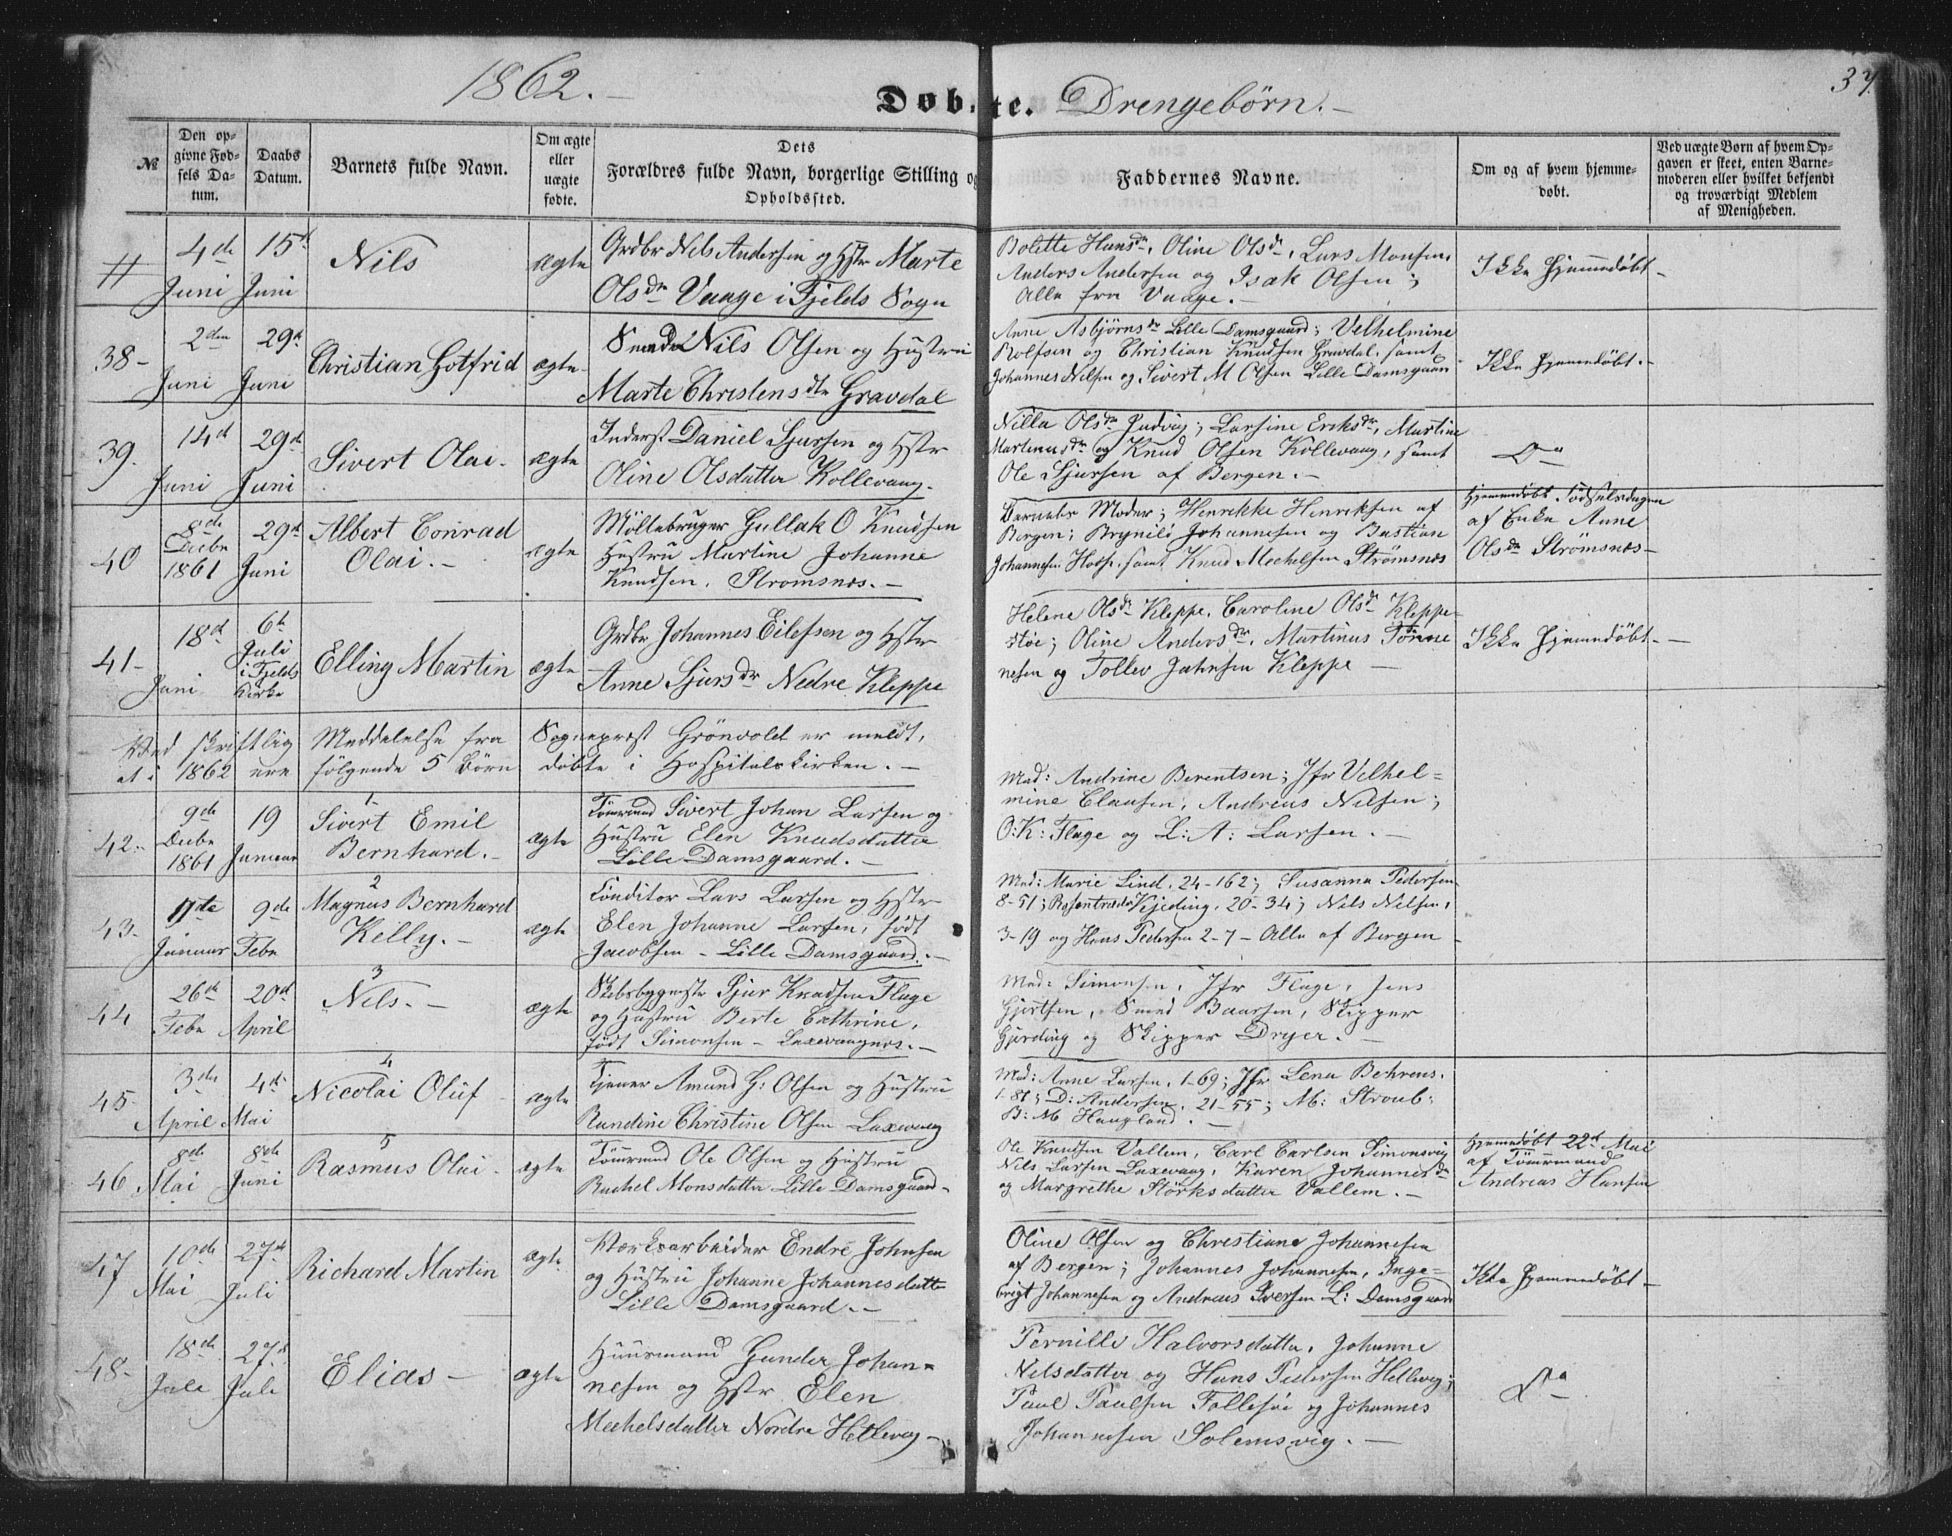 1862.–
Døbte. Drengebørn.–
37.
№
Den opgivne Fødsels Datum.
Daabs Datum.
Barnets fulde Navn.
Om ægte eller uægte fødte.
Dets
Forældres fulde Navn, borgerlige Stilling og
Opholdssted.
Faddernes Navne.
Om og af hvem hjemmedøbt.
Ved uægte Børn af hvem Opgaven er skeet, enten Barnemoderen eller hvilket bekjendt og troværdigt Medlem af Menigheden.
4de Juni
15d Juni
Nils
ægte
Grdbr Nels Andersen og Hstr Marte
Olsdr Vaage i Fjelds Sogn
Bolette Hansdr, Oline Olsdr, Lars Monsen,
Anders Andersen og Isak Olsen;
Alle fra Vaage.–
Ikke Hjemmedøbt–
38–
2den Juni
29d Juni
Christian Gotfrid
ægte
Smed Nils Olsen og Hustru
Marte Christensdtr Gravdal
Anne Asbjørnsdr Lille Damsgaard; Velhelmine
Rolfsen og Christian Knudsen Gravdal, samt
Johannes Nilsen og Sivert M Olsen Lille Damsgaard
Ikke Hjemmedøbt.–
39.
14d Juni
29d Juni
Sivert Olai.
ægte
Inderst Daniel Sjursen og Hstr
Oline Olsdatter Kollevaag.
Nilla Olsdr Ludvig; Larsine Eriksdr, Martine
Martinusdr og Knud Olsen Kollevaag, samt
Ole Sjursen af Bergen.–
Do
40
8de Decbr 1861
29d Juni
Albert Conrad
Olai.–
ægte
Møllebruger Gullak O Knudsen
Hustru Martine Johanne
Knudsen. Strømsnes.–
Barnets Moder; Henrikke Henriksen af
Bergen; Brynild Johannesen og Bastian
Johannesen Hope, samt Knud Mechelsen Strømsnes
Hjemmedøbt Fødselsdagen
af Enke Anne
Olsdr Strømsnes–
41–
18d Juni
6te Juli i Fjelds Kirke
Elling Martin
ægte
Grdbr Johannes Eilefsen og Hstr
Anne Sjursdr Nedre Kleppe
Helene Olsdr Kleppe. Caroline Olsdr Kleppe
støe; Oline Andersdr, Martinus Tønne
nesen og Tollev Jahnsen Kleppe –
Ikke Hjemmedøbt.–
Ved skriftlig Meddelelse fra Sognepræst Grönvold er meldt,
at i 1862 ere følgende 5 Børn døbte i Hospitalskirken.–
42–
9de Decbr 1861
19 Januar
1
Sivert Emil
Bernhard.–
ægte
Tömrmand Sivert Johan Larsen og
Hustru Elen Knudsdatter
Lille Damsgaard.–
Mad: Andrine Berentsen; Jfr Velhel=
mine Clausen, Andreas Nilsen;
O:K: Flage og L: A: Larsen.–
43–
Januar
9de Febr
2
Magnus Bernhard
Kelly.–
ægte
Conditor Lars Larsen og Hstr
Elen Johanne Larsen, født
Jacobsen – Lille Damsgaard.–
Mad: Marie Lind. 24-162; Susanna Pedersen
8-51; Kjeding. 20-34; Nils Nilsen,
3-19 og Hans Pedersen 2-7 – Alle af Bergen
44
26d Febr
20d April
3
Nels.–
ægte
Skibsbygmstr Sjur Knudsen Flage
og Hustru Berte Cathrine,
født Simonsen – Laxevaagnæs.–
Mad: Simonsen, Jfr Flage, Jens
Gjertsen, Smed Baarsen, Skipper
Gjerding og Skipper Dreyer.–
45–
3de April
4de Mai
4
Nicolai Oluf
ægte
Tjener Amund G: Olsen og Hustru
Rundine Christine Olsen Laxevaag
Mad: Anne Larsen. 1-69; Jfr Lena Behrens.
1-81; D: Andersen. 21-55; M: Stroub:
B: M Haugland.–
46
8de Mai
8de Juni
5
Rasmus Olai–
ægte
Tömrmand Ole Olsen og Hustru
Rachel Monsdatter Lille Damsgaard–
Ole Knudsen Vallem, Carl Carlsen Simonsvig
Nils Larsen Laxevaag, Karen Johannesdr
og Margrethe Störksdatter Vallem.–
Hjemmedøbt 22d Mai
af Tømmrmand
Andreas Hansen
47
10de Mai
27d Juli
Richard Martin
ægte
Værksarbeider Endre Johnsen
og Hustru Johanne Johannesdatter
Lille Damsgaard.–
Oline Olsen og Christiane Johannesen
af Bergen; Johannes Johannesen, Inge=
brigt Johannesen og Andreas Iversen L: Damsgaard
Ikke Hjemmedøbt–
48–
18de Juli
27d Juli
Elias–
ægte
Huusmand Gunder Johan=
nesen og Hstr Elen
Mechelsdatter Nordre Hetlevig–
Pernille Halvorsdatter, Johanne
Nelsdatter og Hans Pedersen Hellevig;
Paul Paulsen Follesøe og Johannes
Johannesen Solemsvig.–
Do